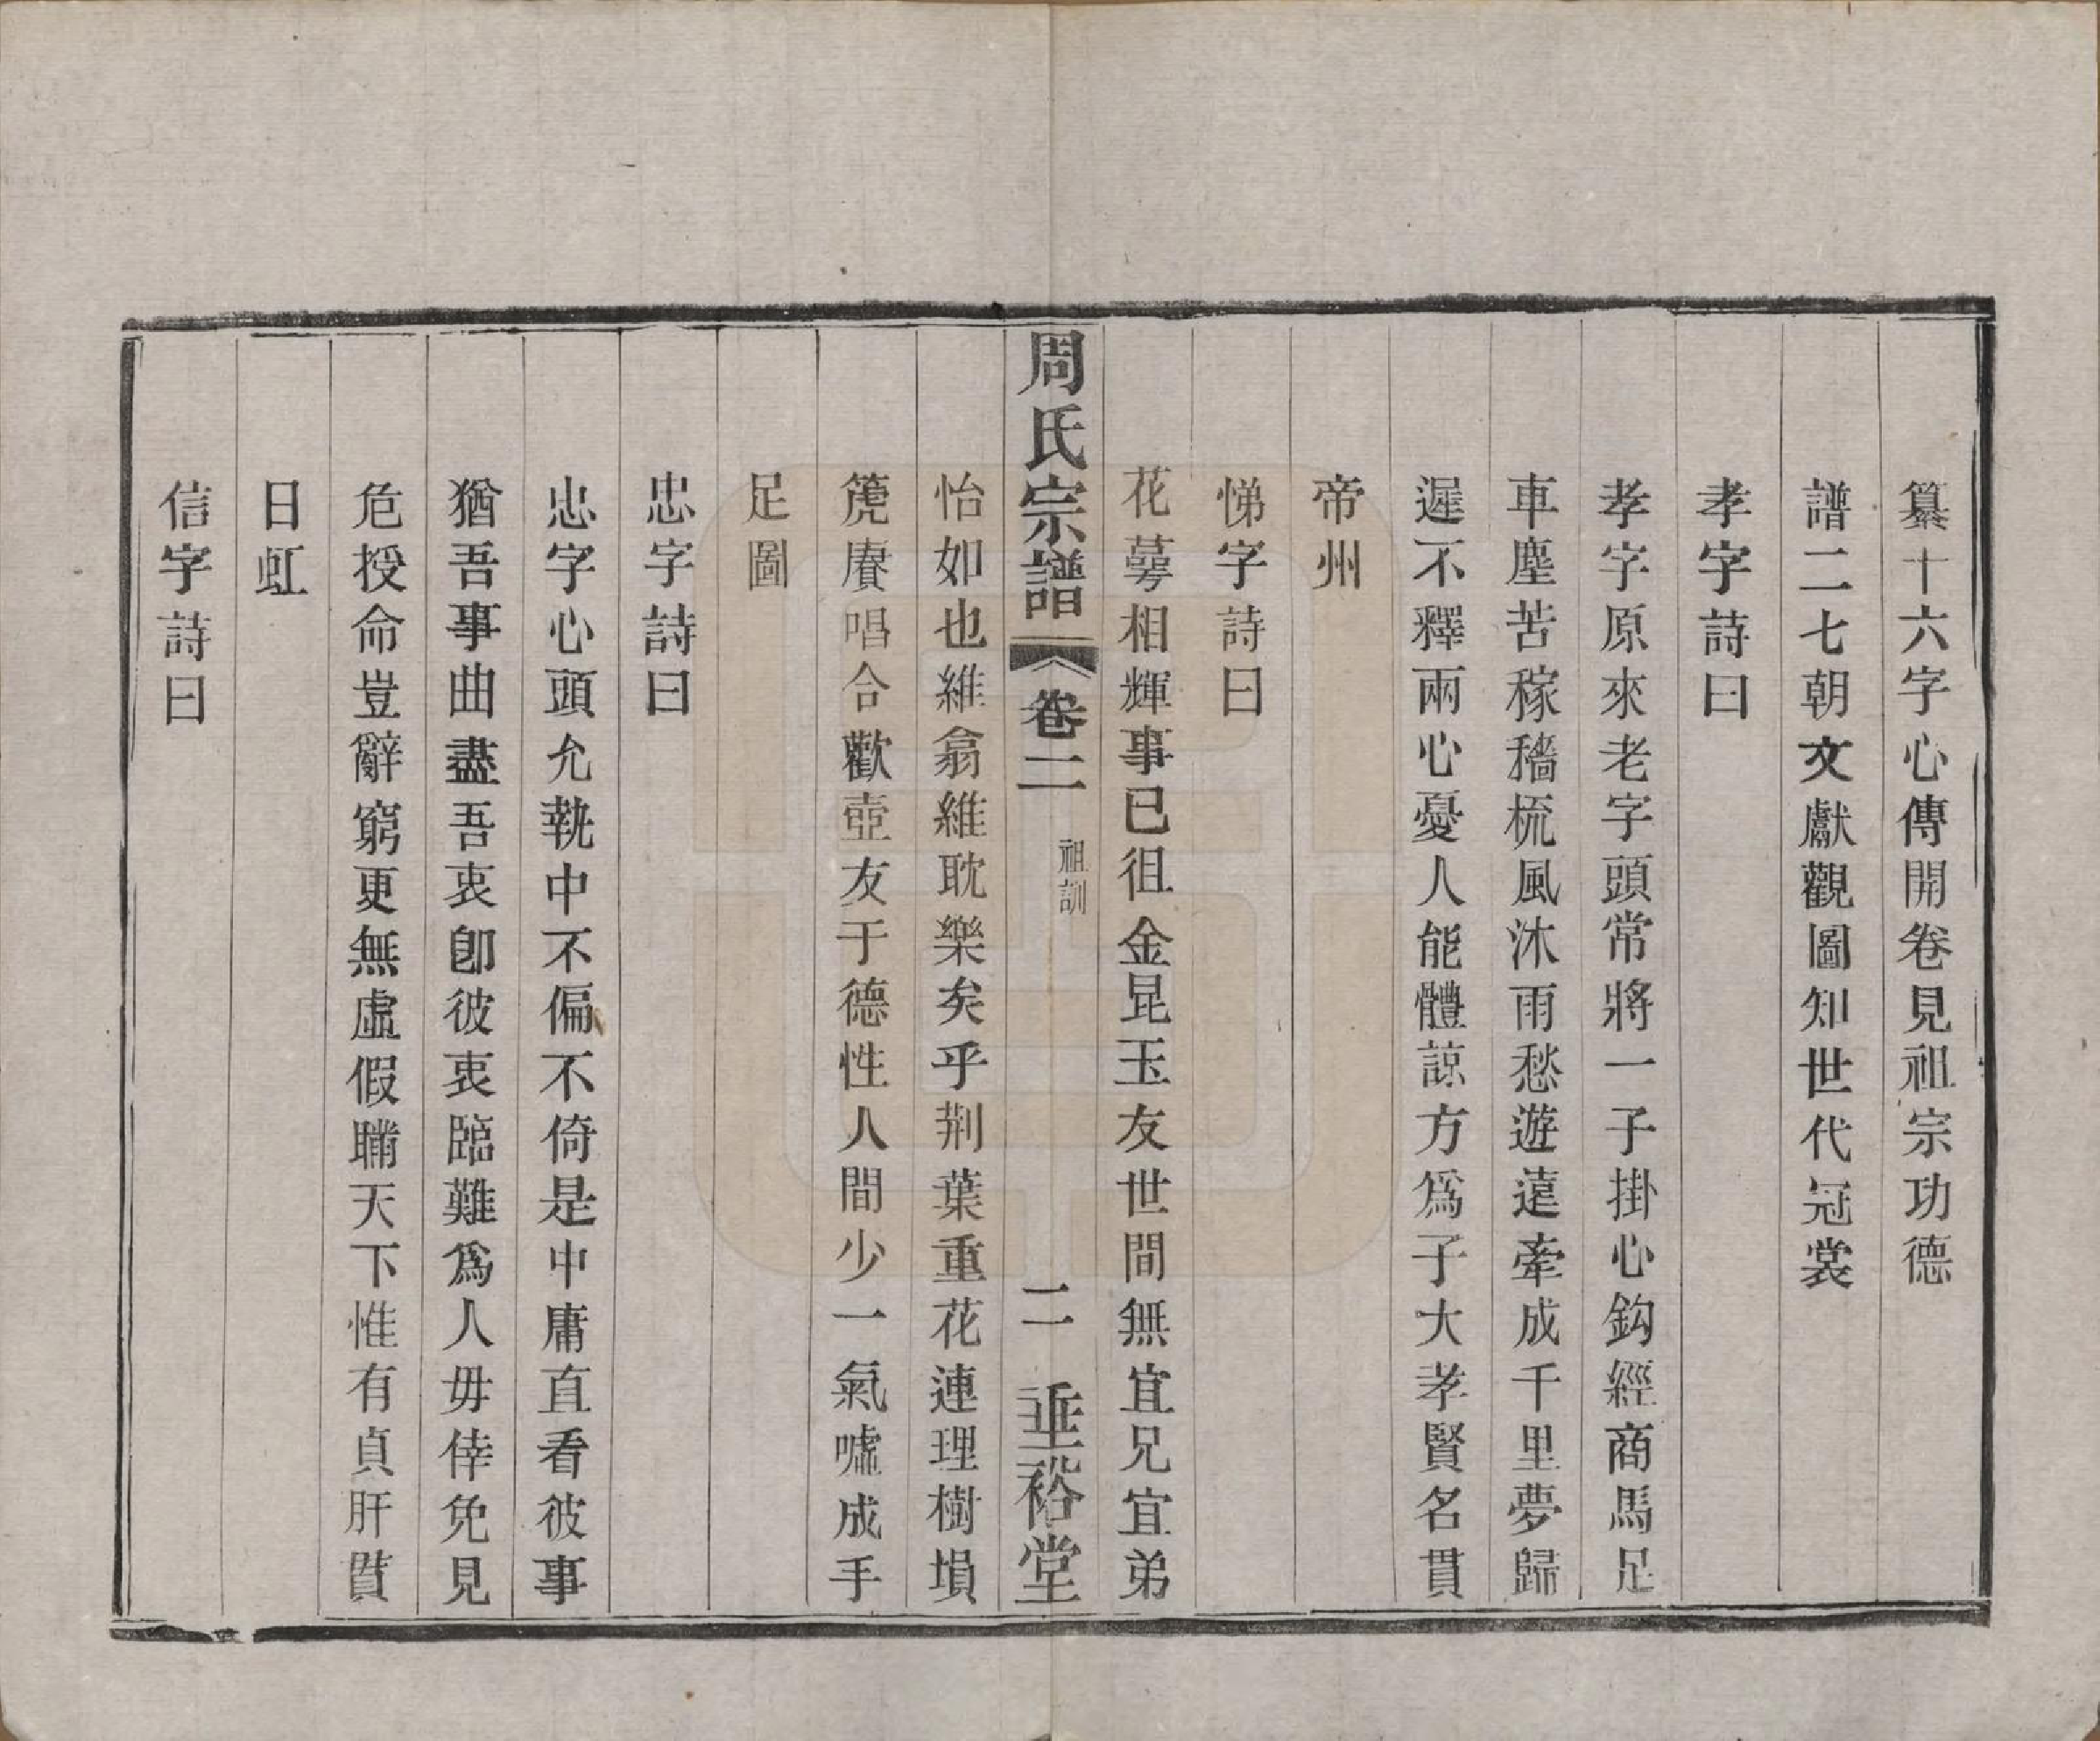 纂十六字心傳開卷見祖宗功德
譜二七朝文獻觀圖知世代冠裳
孝字詩曰
孝字原來老字頭常將一子掛心鈎經商馬足
車塵苦稼穡梳風沐雨愁遊遠牽成千里夢歸
遲不釋兩心憂人能體諒方爲子大孝賢名貫
帝州
悌字詩曰
花蕚相輝事已徂金昆玉友世間無宜兄宜弟
周氏宗譜 卷二 祖訓 二 垂裕堂
怡如也維翕維耽樂矣乎荆葉重花連理樹塤
箎賡唱合歡壺友于德性人間少一氣噓成手
足圖
忠字詩曰
忠字心頭允執中不偏不倚是中庸直看彼事
猶吾事曲盡吾衷卽彼衷臨難爲人毋倖免見
危授命豈辭窮更無虛假瞞天下惟有貞肝貫
日虹
信字詩曰